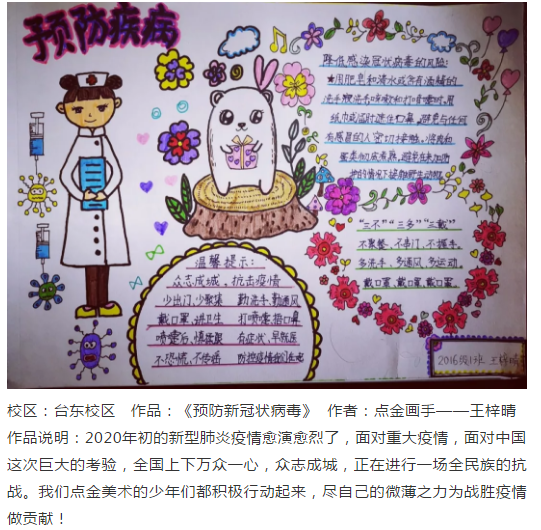 预防疾病
降低感染冠状病毒的风险:
★用肥皂和清水或含有酒精的
洗手液洗手咳嗽和打喷嚏时,用
纸巾或屈肘遮住口鼻,避免与任何
有感冒的人密切接触,
"三不""三多""三戴"
不聚餐、不串门、不握手、
多洗手、多通风、多运动、
戴口罩、戴口罩、戴口罩。
温馨提示:
众志成城、抗击疫情
少出门、少聚集 勤洗手、勤通风
戴口罩、讲卫生 打喷嚏、捂口鼻
喷嚏后、慎揉眼 有症状、早就医
不恐慌、不传谣
2016级1班
校区：台东校区 作品：《预防新冠状病毒》 作者：点金画手——王梓晴
作品说明：2020年初的新型肺炎疫情愈演愈烈了，面对重大疫情，面对中国
这次巨大的考验，全国上下万众一心，众志成城，正在进行一场全民族的抗
战。我们点金美术的少年们都积极行动起来，尽自己的微薄之力为战胜疫情
做贡献！